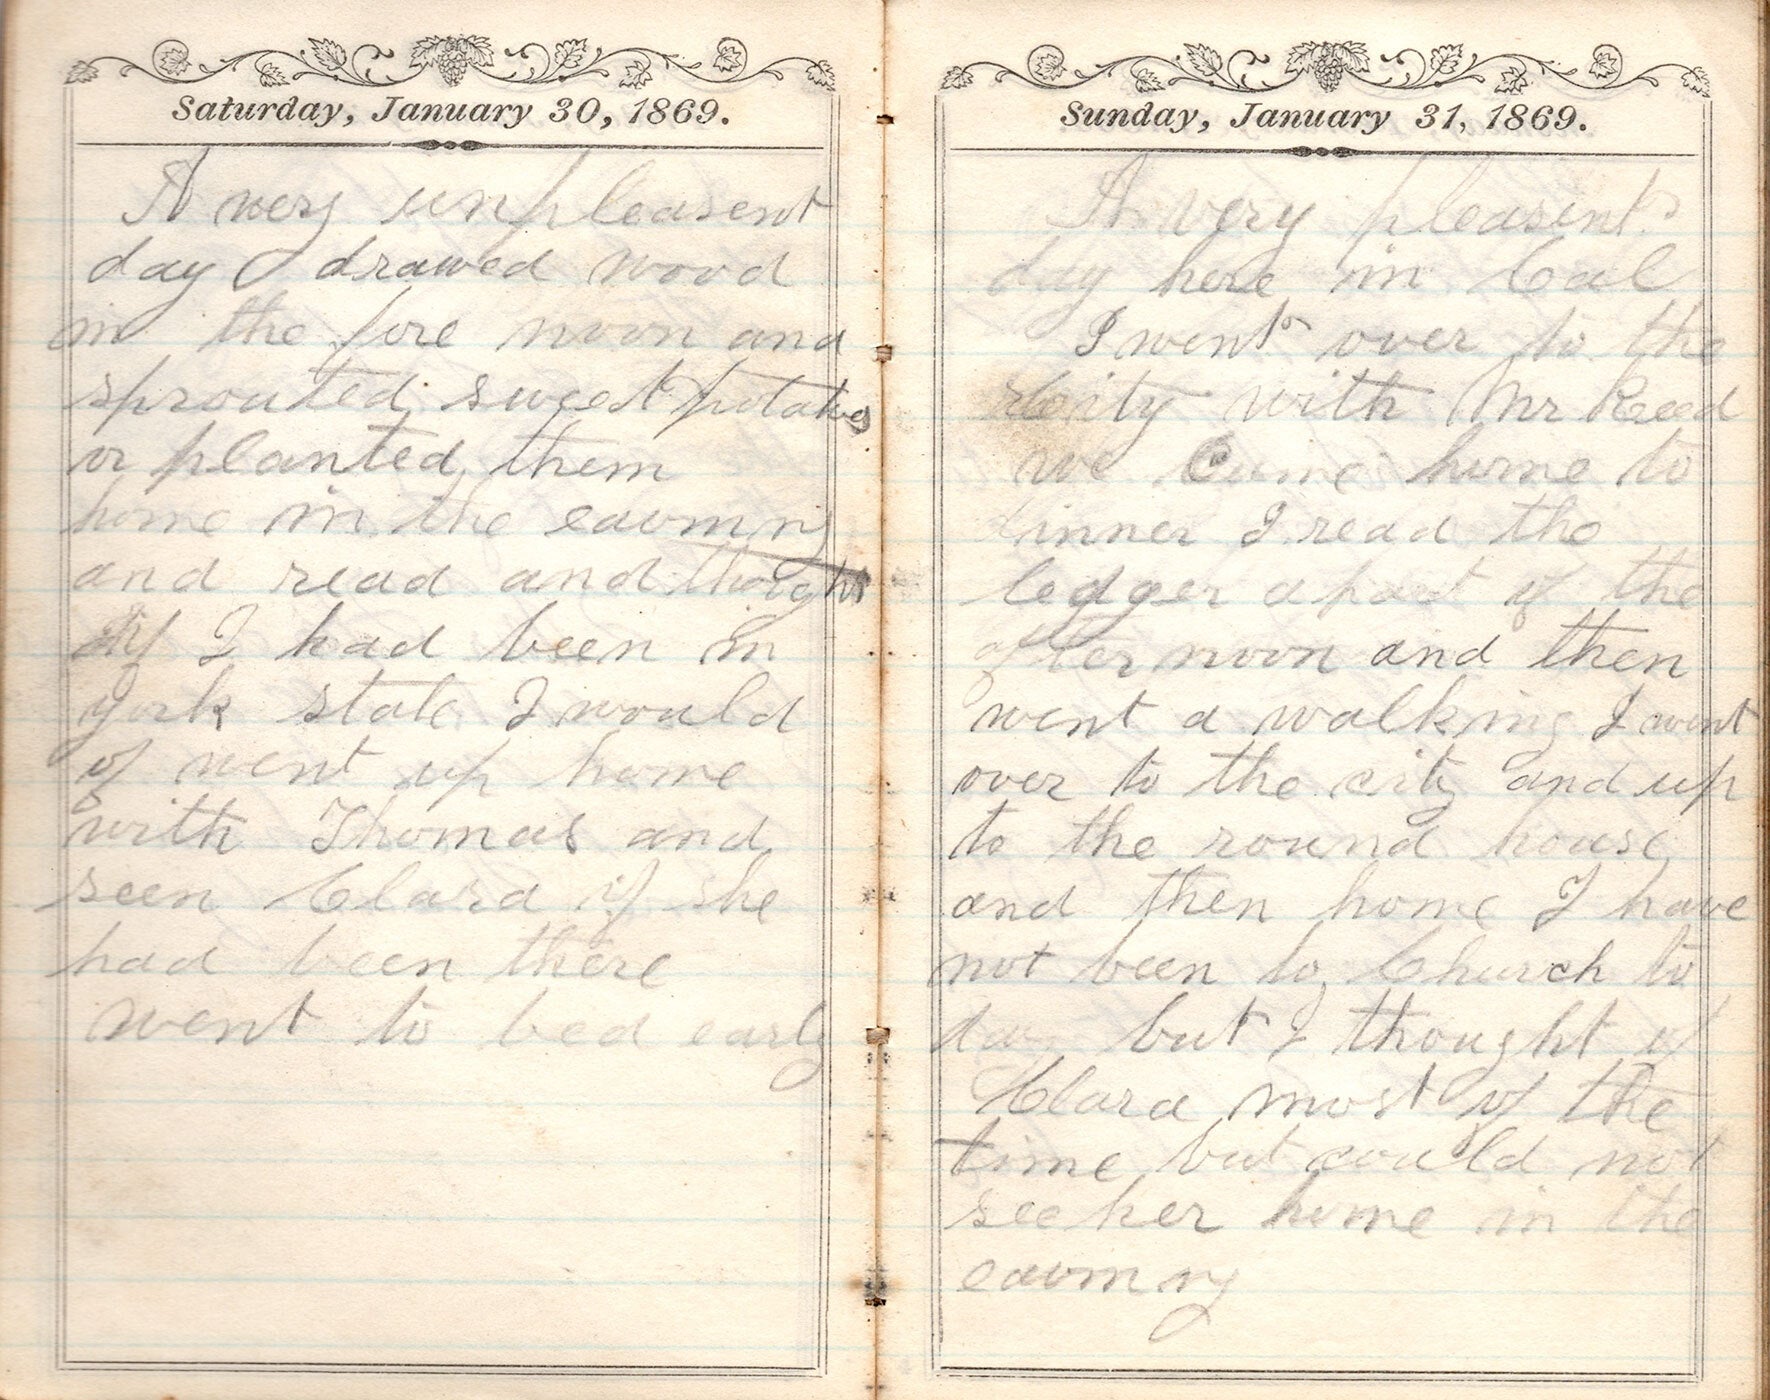 Saturday, January 30, 1869.
A very unpleasent
day I drawed wood
in the fore noon and
sprouted sweet potatoes
or planted them
home in the eavning
and read and thought
if I had been in
york state I would
of went up home
with Thomas and
seen Clara if she
had been there
went to bed early
Sunday, January 31, 1869.
A very pleasent
day here in Cal
I went over to the
City with Mr Reed
we Came home to
dinner I read the
ledger a part of the
after noon and then
went a walking I went
over to the city and up
to the round house
and then home I have
not been to Church to
day but I thought of
Clara most of the
time but could not
see her home in the
eavning